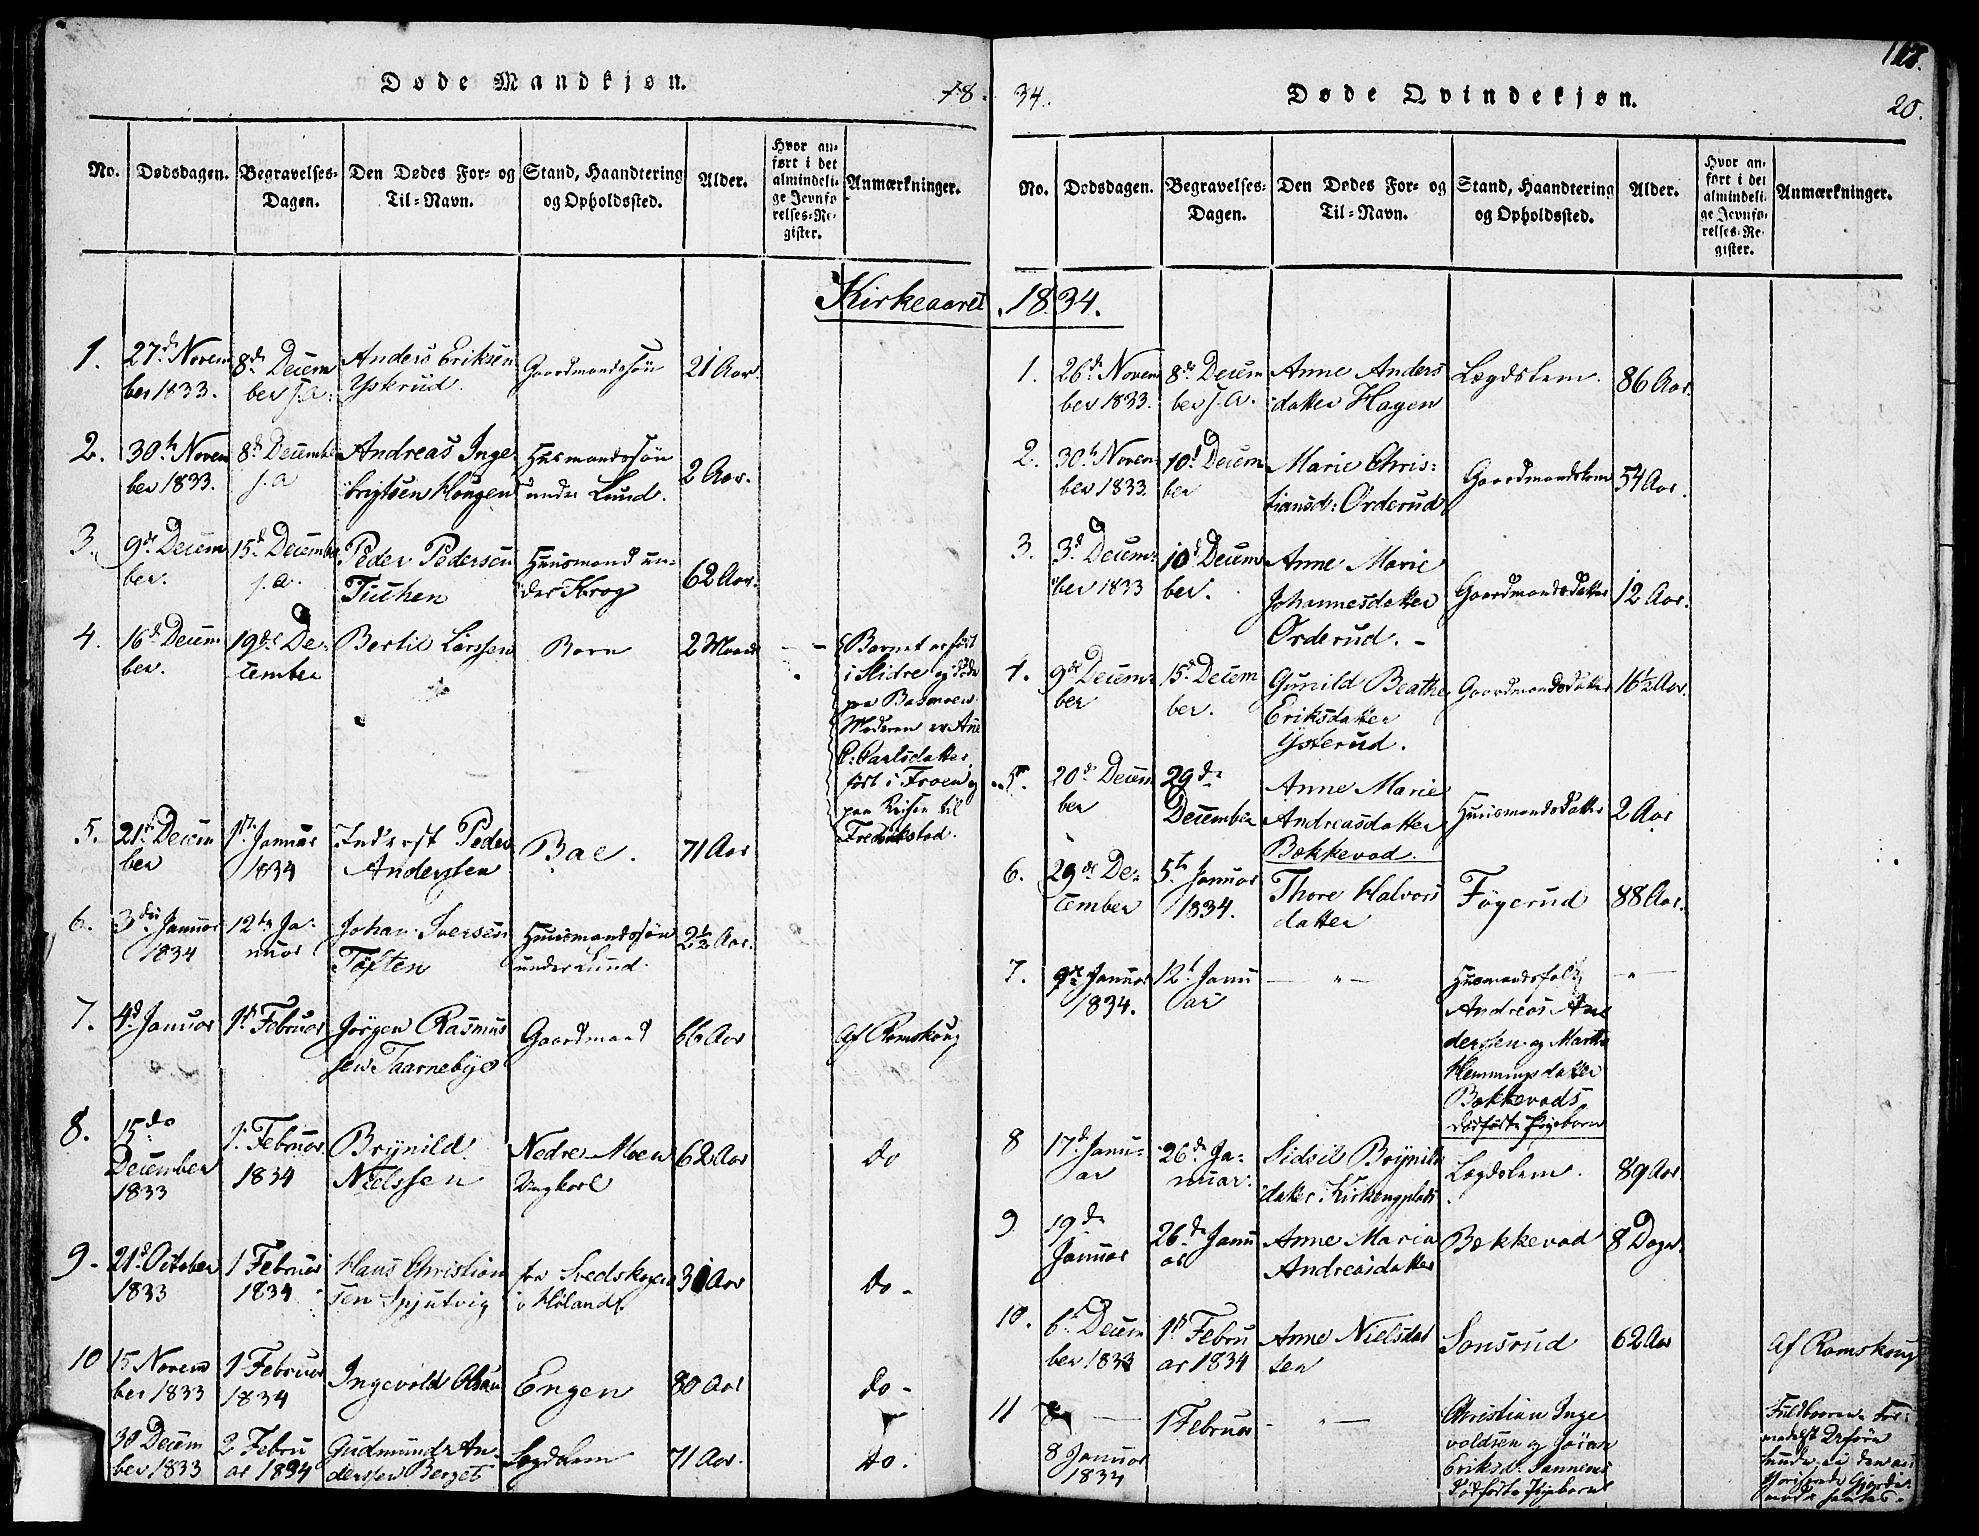 Døde Mandkjøn.
18
No.
Dødsdagen.
Begravelses-
Dagen.
Den Dødes For- og
Til-Navn.
Stand, Haandtering
og Opholdssted.
Alder.
Hvor an-
ført i det
almindeli-
ge Jevnfø
relses-Re-
gister.
Anmærkninger.
Kirkeaaret
1.
27de Novem
ber 1833.
8de Decem
ber s.a.
Anders Eriksen
Ysterud.
Gaardmandssøn
21 Aar.
2.
30te Novem
ber 1833.
8de December
s.a
Andreas Inge
brigtsen Hougen
Husmandssøn
under Lund.
2 Aar.
3.
9de Decem
ber.
15de December
s.a.
Peder Pedersen
Huusmand un-
der Krog
62 Aar.
4.
16de Decem
ber.
19de De-
cember
Bertil Larssen
Barn
2 Maaned
Barnet er født
i Slidre og døde
paa Basmoen.
Moderen er Ane
C: Carlsdatter,
født i Froen og
paa Reisen til
Fredrikstad.
5.
21de Decem
ber
1ste Januar
1834
Inderst Peder
Anderssen
Bae.
71 Aar
6.
3die Januar
1834
12te Ja-
nuar
Johan Iversen
Tøften
Huusmandssøn
under Lund.
2½ Aar.
7.
4de Januar
1ste Februar
Jørgen Rasmus
sen Taarnebye
Gaardmand
66 Aar
Af Romskoug
8.
15de
December
1833
1. Februar
1834
Brynild
Nielssen
Nedre Moen
Ungkarl
62 Aar
do
9.
21de October
1833
1 Februar
1834
Hans Christian
sen Spjutvig
fra Svedskogen
i Høland.
31 Aar
do.
10
15 Novem
ber 1833
1 Februar
1834
Ingevold Olsen
Engen
80 Aar
do.
30 Decem
ber 1833
2 Febru
ar 1834
Gudmund An-
derssen Berget
Lægdslem
71 Aar.
do.
34.
Døde Qvindekjøn.
20.
No.
Dødsdagen.
Begravelses-
Dagen.
Den Dødes For- og
Til-Navn.
Stand, Haandtering
og Opholdssted.
Alder.
Hvor an-
ført i det
almindeli-
ge Jevnfø-
relses-Re-
gister.
Anmærkninger.
1834.
1.
26de Novem
ber 1833.
8de Decem
ber s.a.
Anne Anders
datter Hagen
Lægdslem.
86 Aar.
2.
30te Novem
ber 1833.
10de Decem
ber
Marie Chris-
tiansd: Orderud
Gaardmandskone
54 Aar.
3.
3de Decem-
ber 1833
10de Decem
ber.
Anne Marie
Johannesdatter
Orderud.
Gaardmandsdatter
12 Aar.
4.
9de Decem-
ber
15de Decem
ber.
Gunild Beathe
Eriksdatter
Ysterud.
Gaardmandsdatter
16½ Aar.
5.
20de Decem
ber
29de
December
Anne Marie
Andreasdatter
Bækkevad.
Huusmandsdatter
2 Aar
6.
29de De-
cember
5te Januar
1834.
Thore Halvors
datter
Føgerud
88 Aar.
7.
9de Januar
1834.
12te Janu
ar
— " —
Husmandsfolk
Andreas An
derssen og Marthe
Hemmingsdatter
Bækkevads
dødfødte Pigebarn
— " —
8
17de Janu-
ar
26de Ja-
nuar.
Sidsil Brynilds
datter Kirkengplads
Lægdslem.
89 Aar
9
19de
Januar
26de Janu
ar
Anne Maria
Andreasdatter
Bækkevad
8 Dage.
10.
6te Decem
ber 1833
1ste Febru
ar 1834
Anne Nielsdat
ter
Sonsrud
62 Aar
Af Romskoug
11
8 Januar
1834
1 Februar
— " —
Christian Inge
voldsen og Jøran
Eriksd.
dødfødte Pigebarn